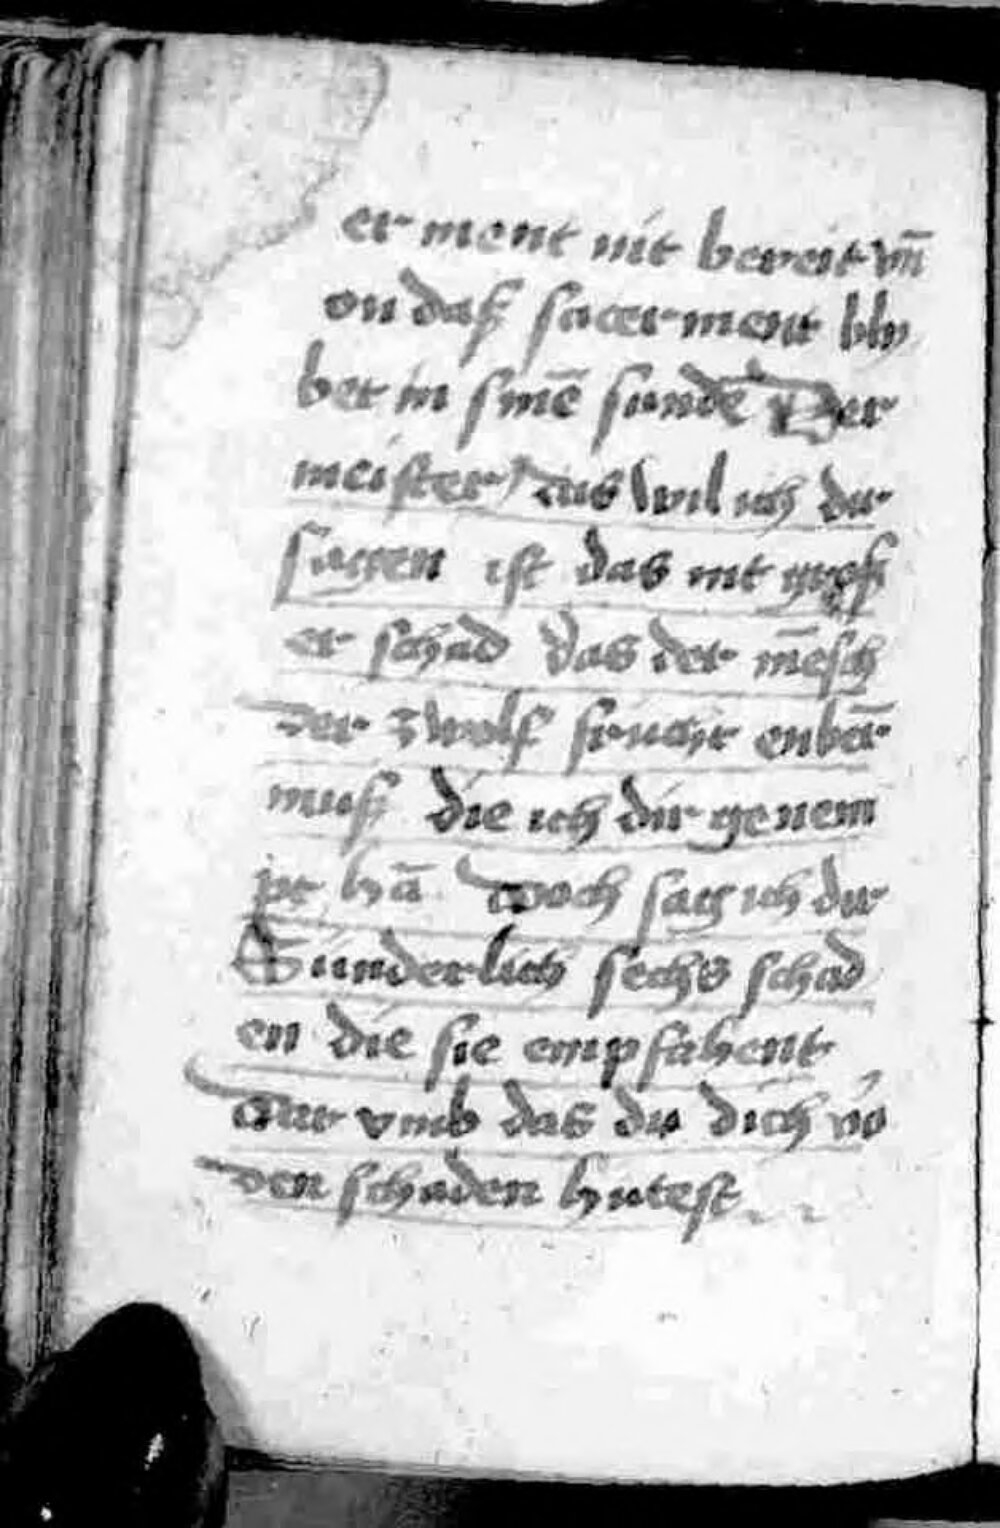 er ment nit bereit vn̄
on das sacrerment bly
bet in sinē sunde Der
meister Das wil ich dir
sagen ist das nit gros
er schad das der mēsch
der zwolf frucht enberē
mus die ich dir genem
pt hā Doch sag ich dir
Sunderlich sechs schad
en die sie empfahent
Dar vmb das du dich vō
den schaden hutest